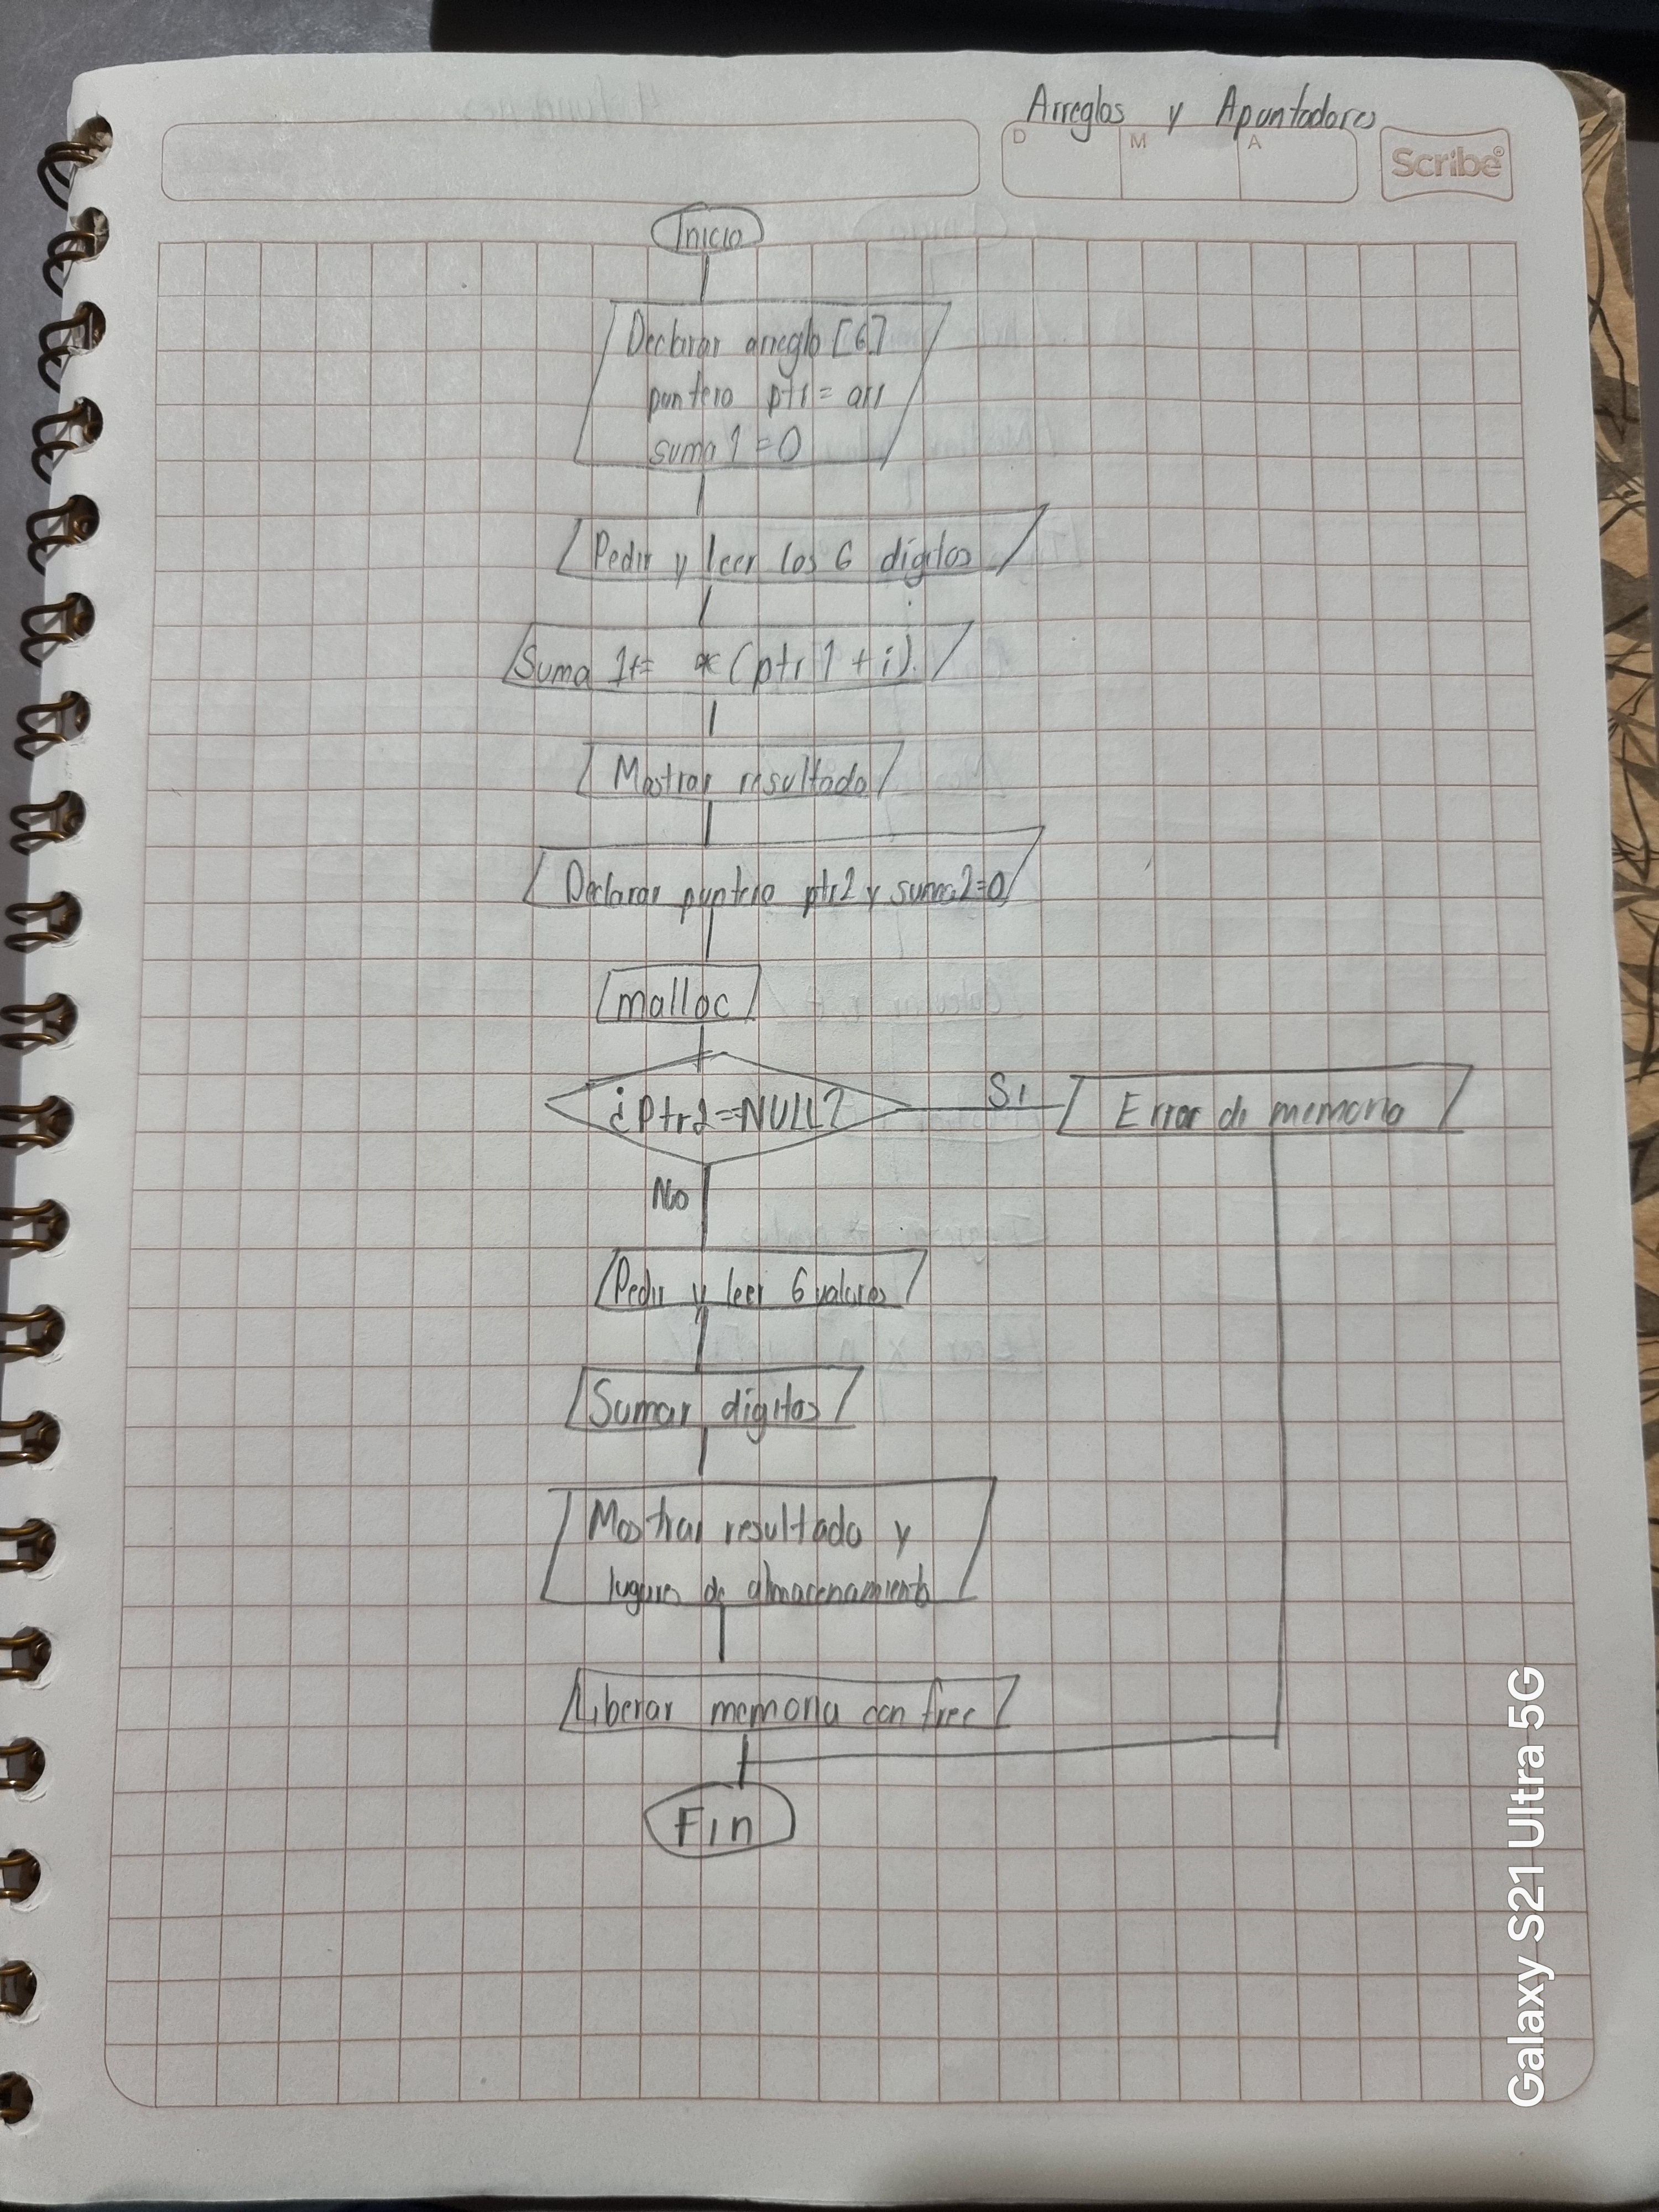 Arreglos y Apuntadores
D M A
Scribe
Inicio
Declarar arreglo [6]
puntero ptr = arr
suma 1 = 0
Pedir y leer los 6 dígitos
Suma 1+= *(ptr 1 + i).
Mostrar resultado
Declarar puntero ptr2 y suma2=0
malloc
¿Ptr2==NULL?
Si
Error de memoria
No
Pedir y leer 6 valores
Sumar digitos
Mostrar resultado y
lugares de almacenamiento
Liberar memoria con free
Fin
Galaxy S21 Ultra 5G